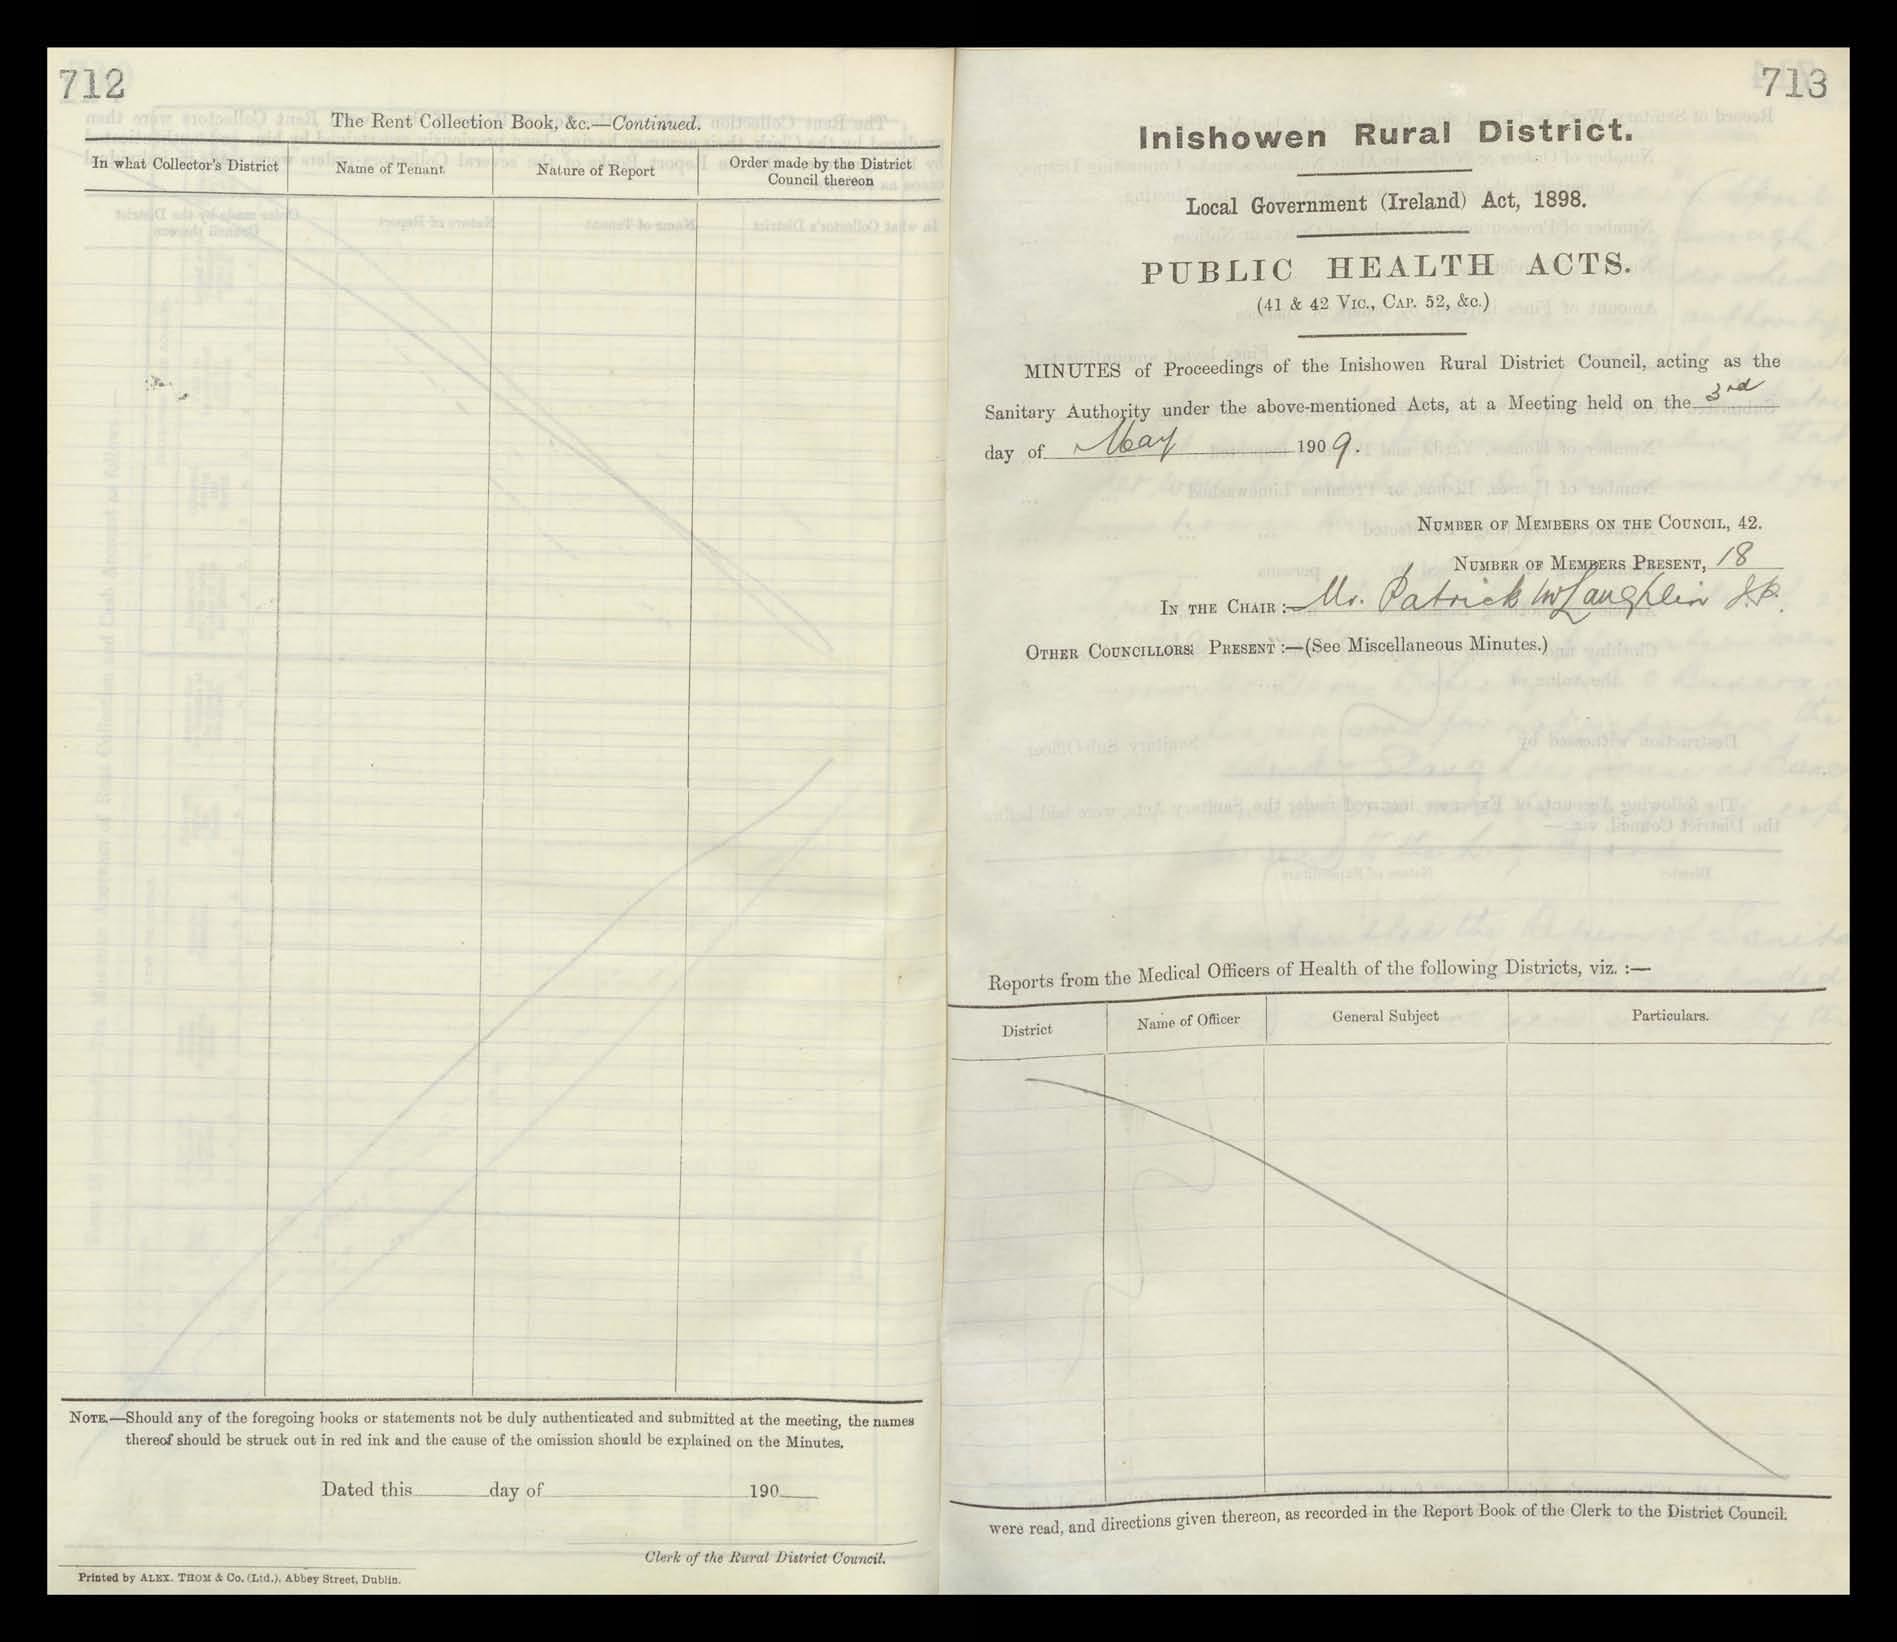 712
The Rent Collection Book, &c.—Continued.
In what Collector's District
Name of Tenant
Nature of Report
Order made by the District
Council thereon
NOTE.—Should any of the foregoing books or statements not be duly authenticated and submitted at the meeting, the names
thereof should be struck out in red ink and the cause of the omission should be explained on the Minutes.
Dated this day of 190
Clerk of the Rural District Council.
Printed by ALEX. THOM & Co. (Ltd.), Abbey Street, Dublin.
713
Inishowen Rural District.
Local Government (Ireland) Act, 1898.
PUBLIC HEALTH ACTS.
(41 & 42 VIC., CAP. 52, &c.)
MINUTES of Proceedings of the Inishowen Rural District Council, acting as the
Sanitary Authority under the above-mentioned Acts, at a Meeting held on the 3rd
day of May 1909.
NUMBER OF MEMBERS ON THE COUNCIL, 42.
NUMBER OF MEMBERS PRESENT, 18
IN THE CHAIR:— Mr. Patrick McLaughlin J.P.
OTHER COUNCILLORS PRESENT:—(See Miscellaneous Minutes.)
Reports from the Medical Officers of Health of the following Districts, viz. :—
District
Name of Officer
General Subject
Particulars.
were read, and directions given thereon, as recorded in the Report Book of the Clerk to the District Council.